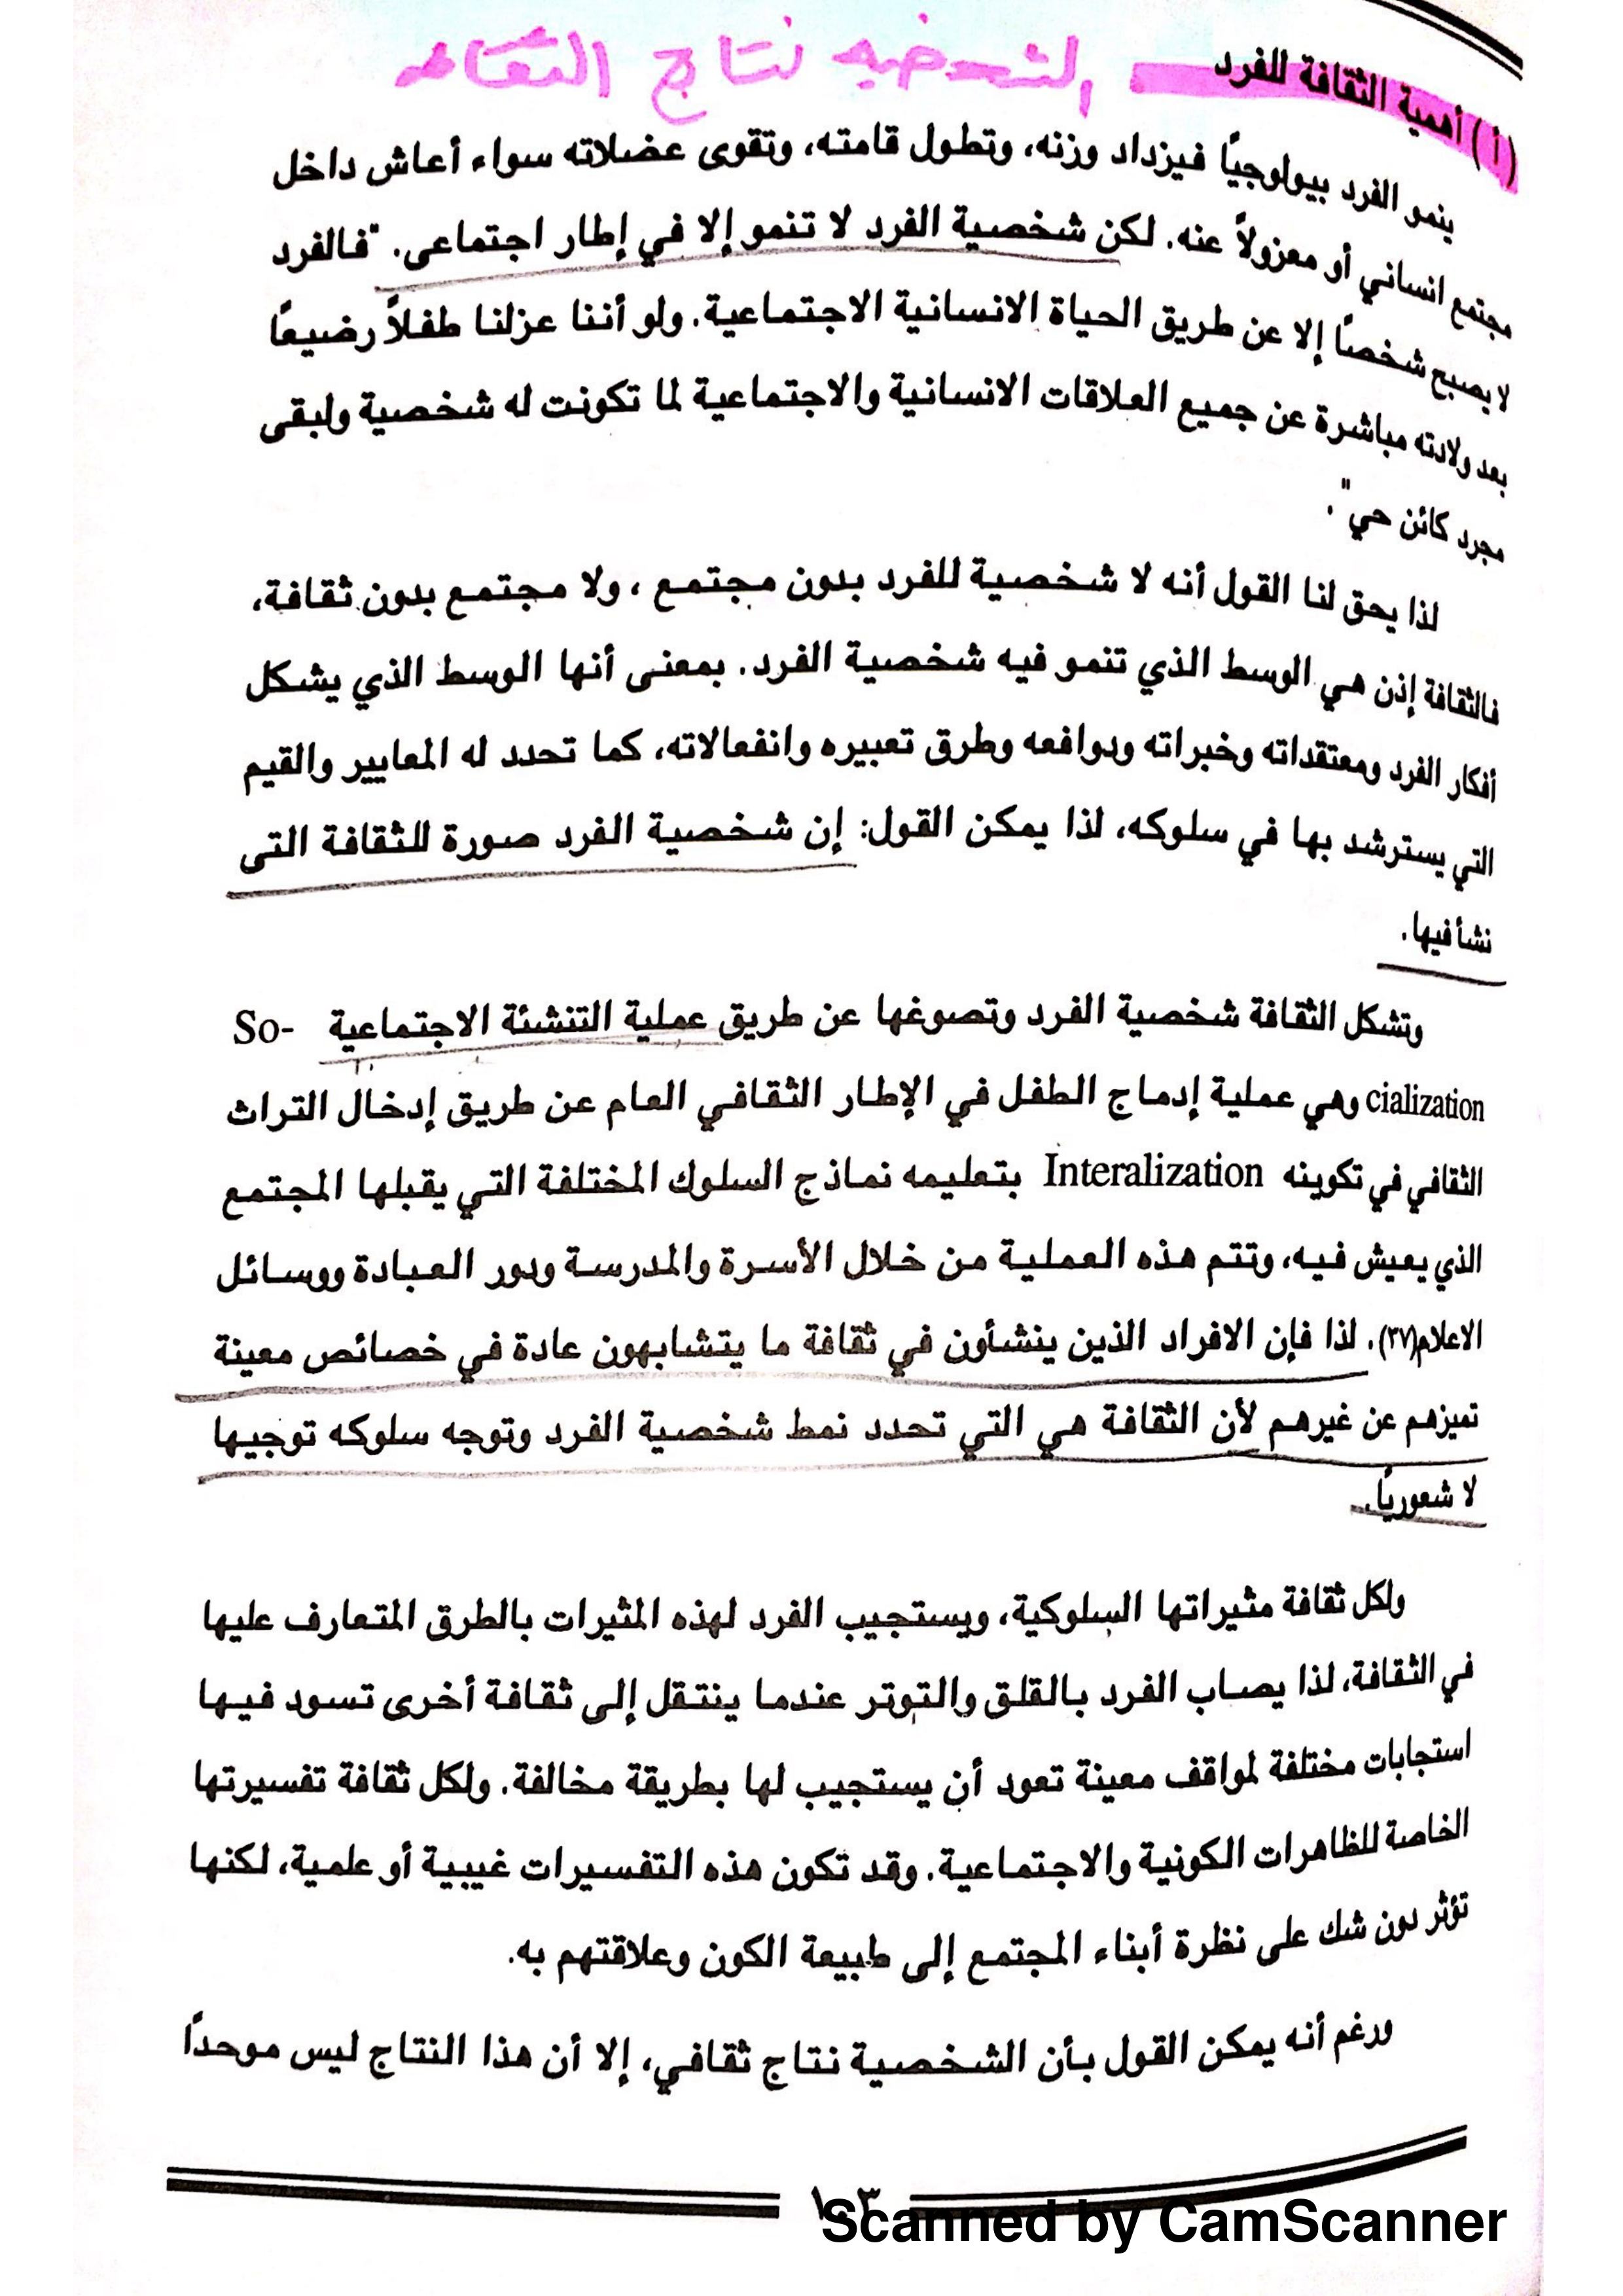 (أ) أهمية الثقافة للفرد الشخصيه نتاج الثقافه
ينمو الفرد بيولوجيًا فيزداد وزنه، وتطول قامته، وتقوى عضلاته سواء أعاش داخل
مجتمع انساني أو معزولاً عنه. لكن شخصية الفرد لا تنمو إلا في إطار اجتماعى. "فالفرد
لا يصبح شخصًا إلا عن طريق الحياة الانسانية الاجتماعية. ولو أننا عزلنا طفلاً رضيعًا
بعد ولادته مباشرة عن جميع العلاقات الانسانية والاجتماعية لما تكونت له شخصية ولبقى
مجرد كائن حي".
لذا يحق لنا القول أنه لا شخصية للفرد بدون مجتمع ، ولا مجتمع بدون ثقافة،
فالثقافة إذن هي الوسط الذي تنمو فيه شخصية الفرد. بمعنى أنها الوسط الذي يشكل
أفكار الفرد ومعتقداته وخبراته ودوافعه وطرق تعبيره وانفعالاته، كما تحدد له المعايير والقيم
التي يسترشد بها في سلوكه، لذا يمكن القول: إن شخصية الفرد صورة للثقافة التى
نشأ فيها.
وتشكل الثقافة شخصية الفرد وتصوغها عن طريق عملية التنشئة الاجتماعية So-
cialization وهي عملية إدماج الطفل في الإطار الثقافي العام عن طريق إدخال التراث
الثقافي في تكوينه Interalization بتعليمه نماذج السلوك المختلفة التي يقبلها المجتمع
الذي يعيش فيه، وتتم هذه العملية من خلال الأسرة والمدرسة ودور العبادة ووسائل
الاعلام(٣٧). لذا فإن الافراد الذين ينشأون في ثقافة ما يتشابهون عادة في خصائص معينة
تميزهم عن غيرهم لأن الثقافة هي التي تحدد نمط شخصية الفرد وتوجه سلوكه توجيها
لا شعوريًا.
ولكل ثقافة مثيراتها السلوكية، ويستجيب الفرد لهذه المثيرات بالطرق المتعارف عليها
في الثقافة، لذا يصاب الفرد بالقلق والتوتر عندما ينتقل إلى ثقافة أخرى تسود فيها
استجابات مختلفة لمواقف معينة تعود أن يستجيب لها بطريقة مخالفة. ولكل ثقافة تفسيرتها
الخاصة للظاهرات الكونية والاجتماعية. وقد تكون هذه التفسيرات غيبية أو علمية، لكنها
تؤثر دون شك على نظرة أبناء المجتمع إلى طبيعة الكون وعلاقتهم به.
ورغم أنه يمكن القول بأن الشخصية نتاج ثقافي، إلا أن هذا النتاج ليس موحدًا
١٠٣
Scanned by CamScanner